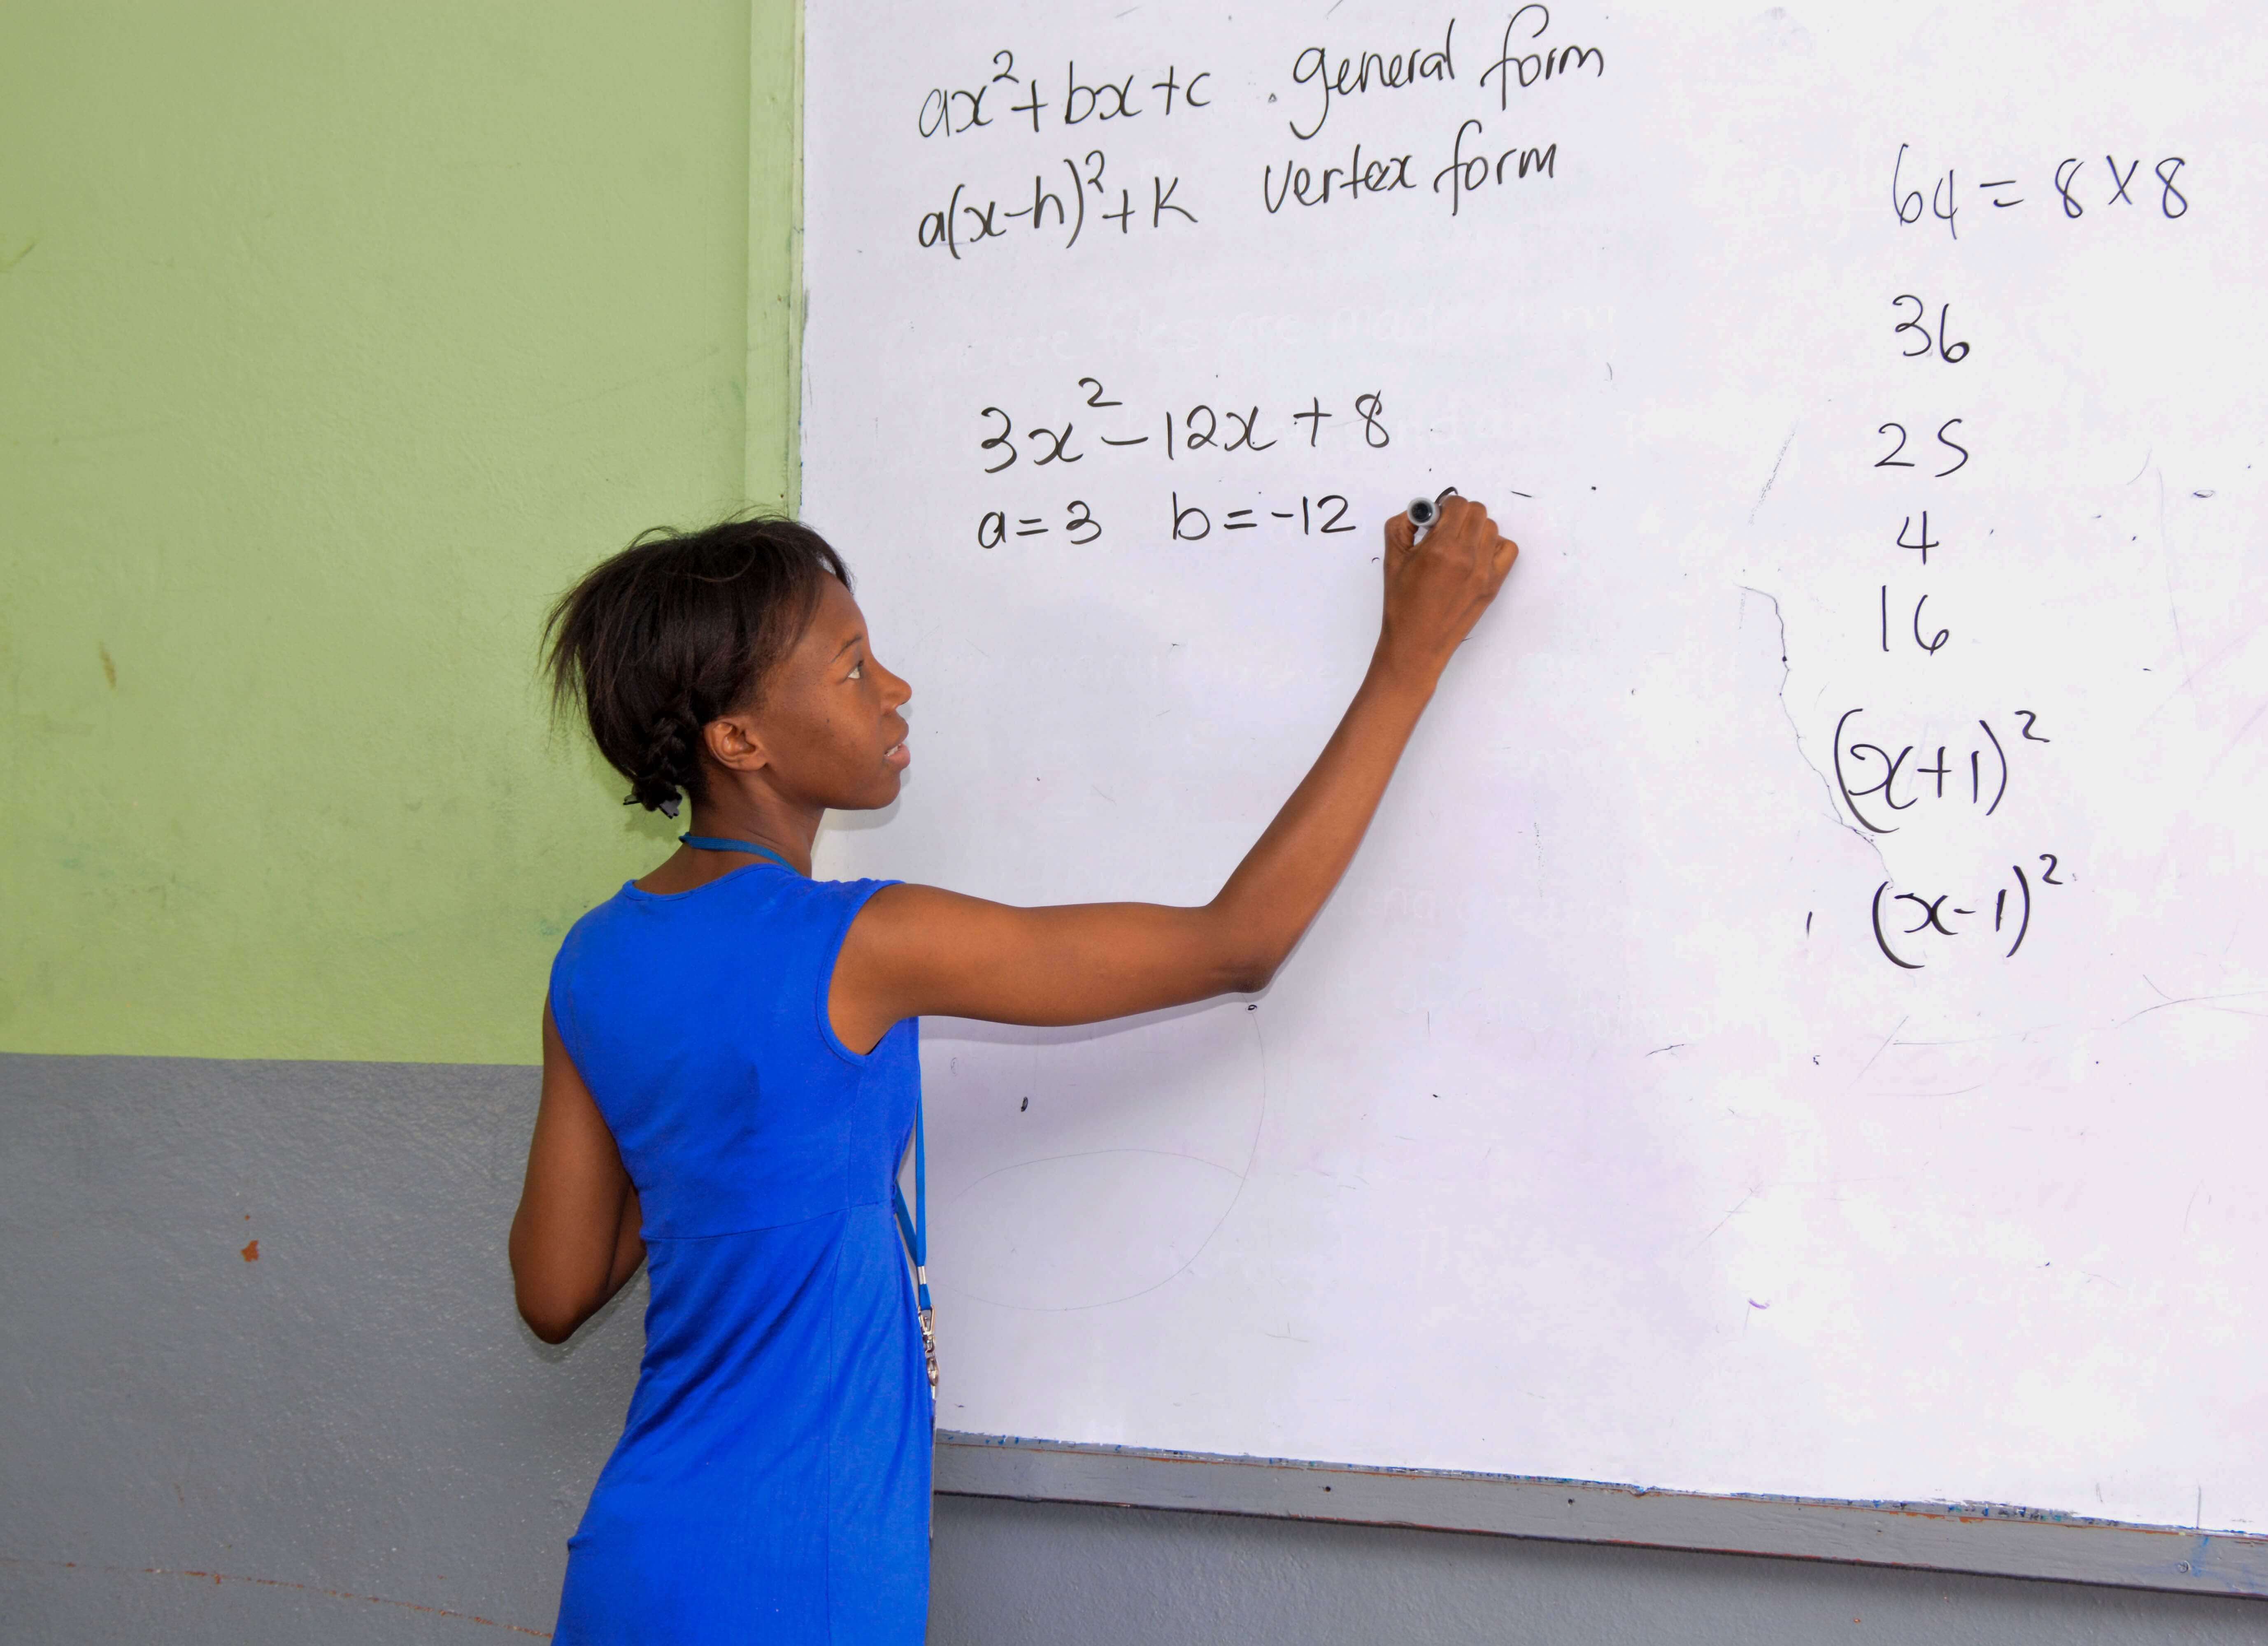 ax²+bx+c general form
a(x-h)²+K vertex form
3x²-12x+8
a=3 b=-12
64=8×8
36
25
4
16
(x+1)²
(x-1)²